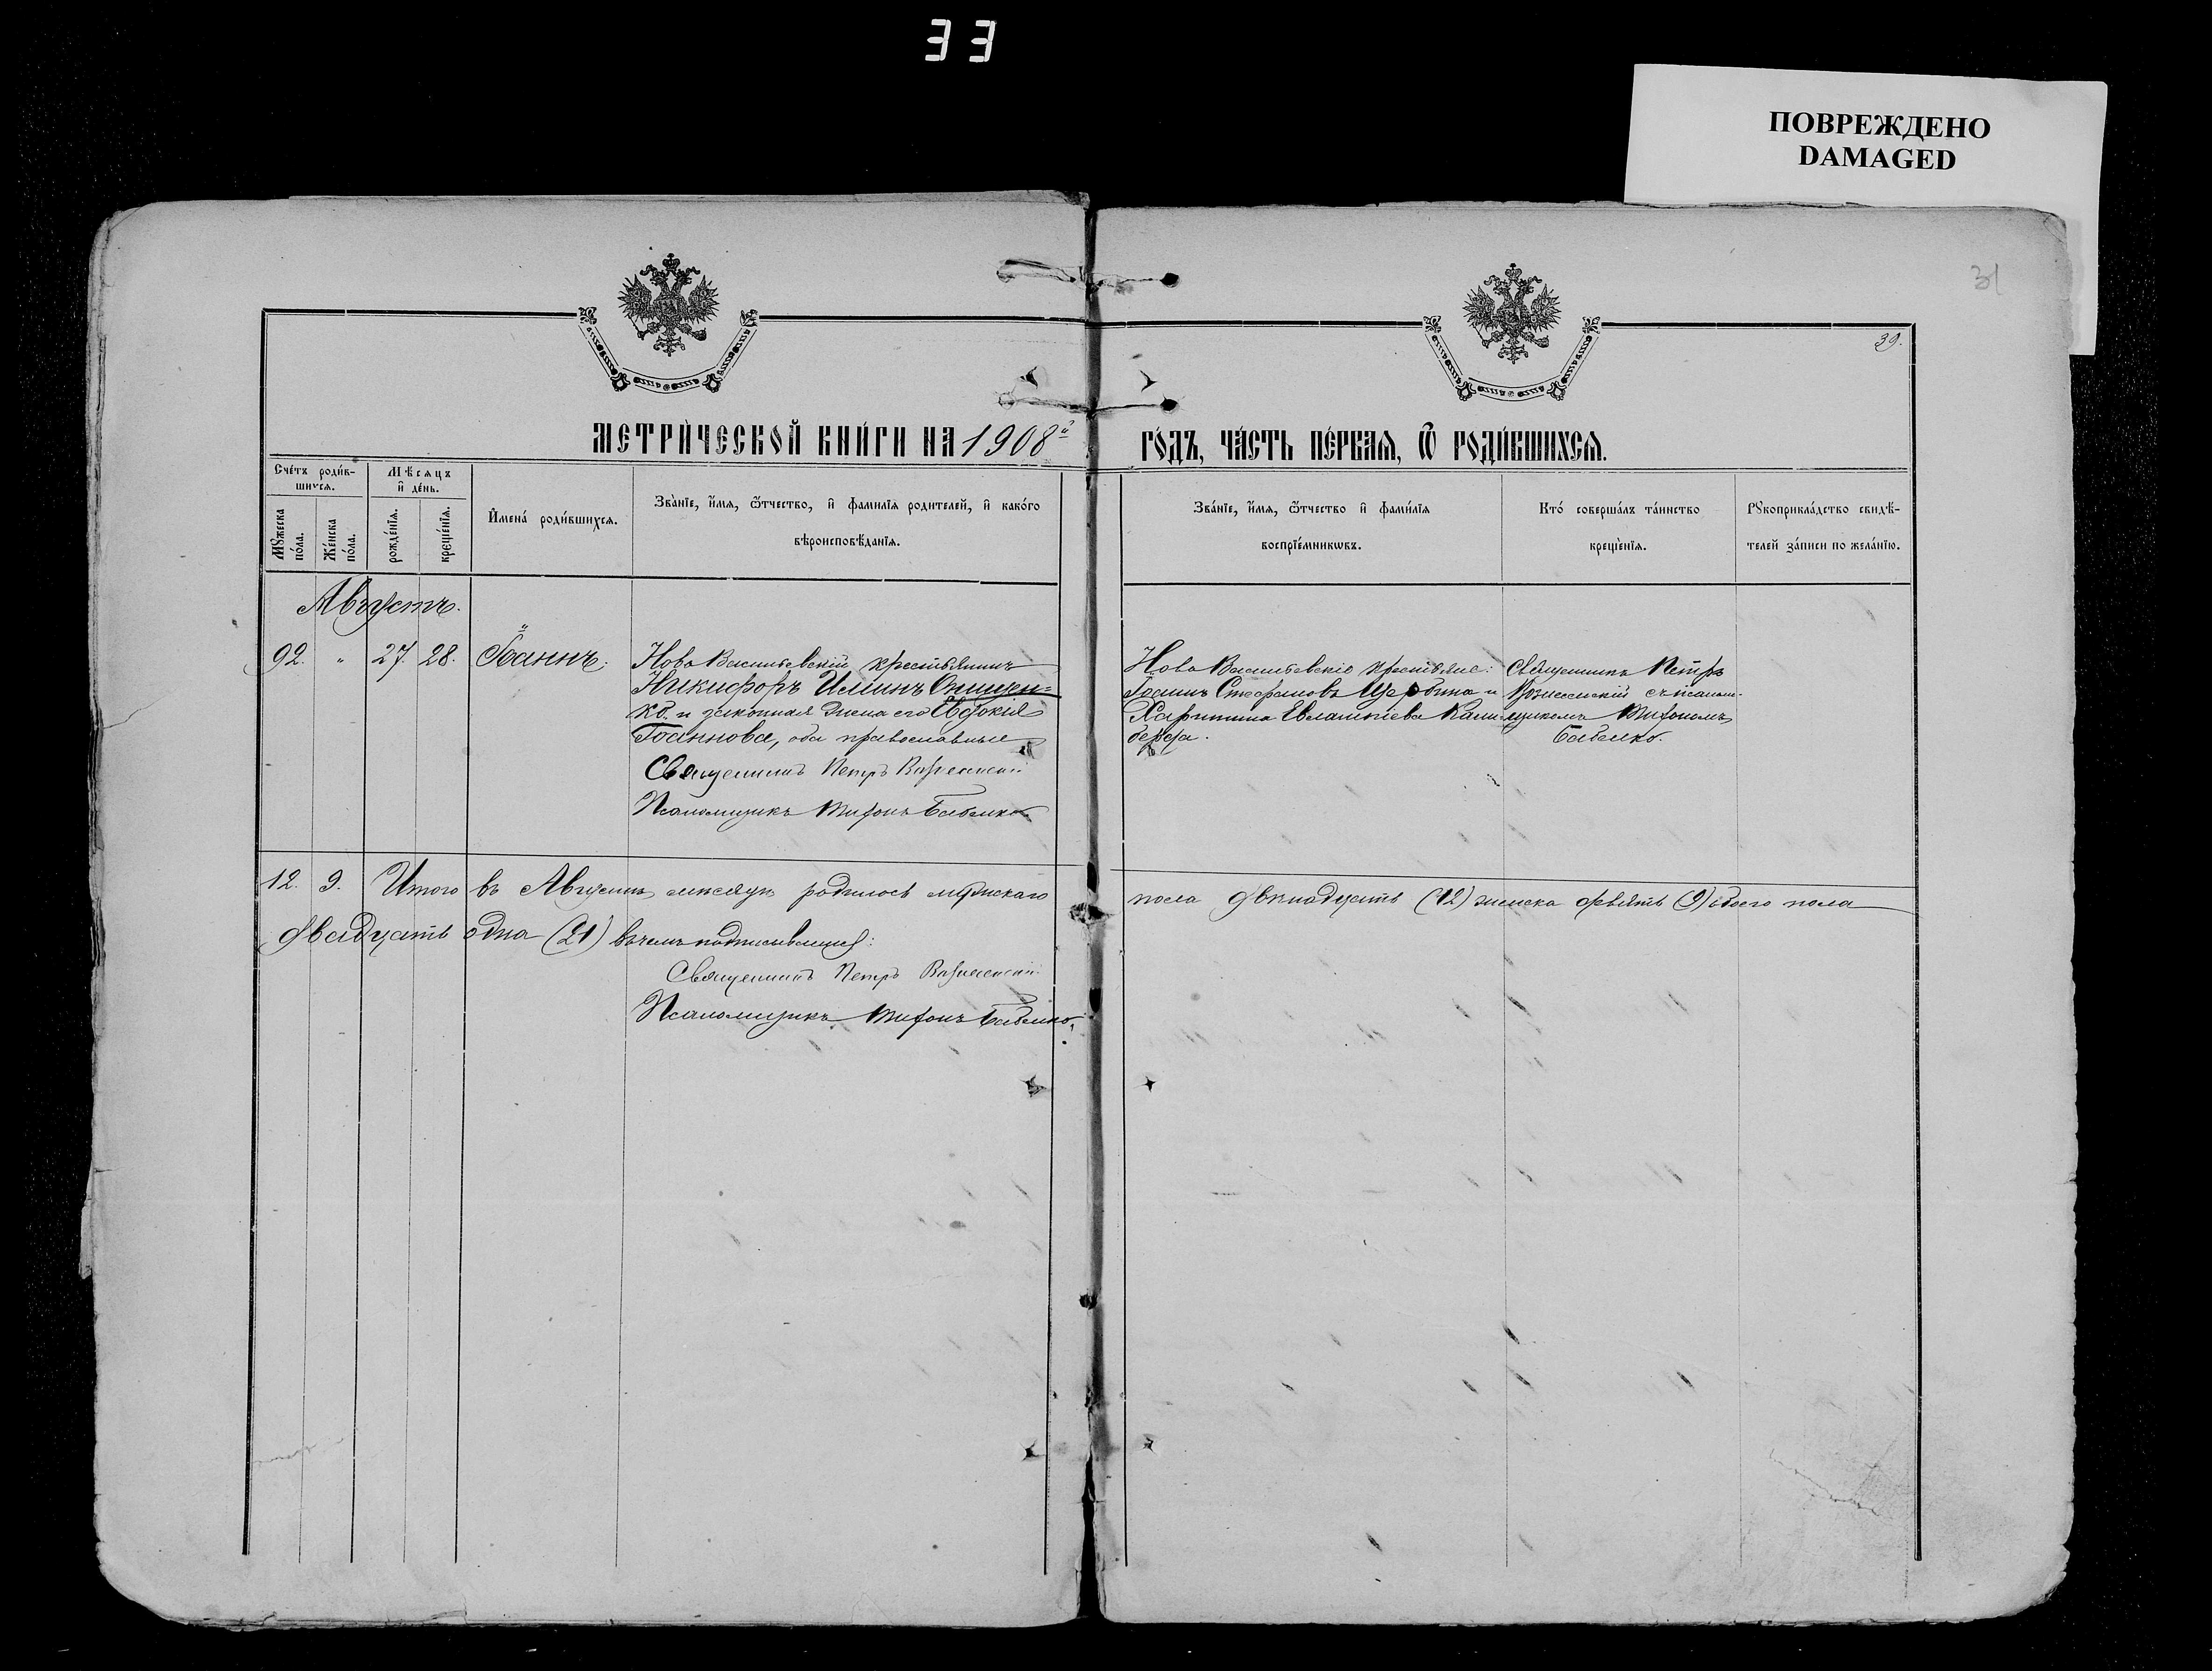 33
ПОВРЕЖДЕНО
DAMAGED
31
39.
МЕТРИ́ЧЕСКОЙ КНИ́ГИ НА 1908й
ГО́ДЪ, ЧА́СТЬ ПЕ́РВАѦ, Ѿ РОДИ́ВШИХСѦ.
Сче́тъ роди́в-
шихсѧ.
Мѣсяцъ
и҆ де́нь.
Мꙋжеска по́ла.
Же́нска по́ла.
рожде́нїѧ.
креще́нїѧ.
И҆мена́ роди́вшихсѧ.
Зва́нїе, и҆́мѧ, ѻ҆́тчество, и҆ фамилїѧ родителей, и҆ како́го
вѣроисповѣ́данїѧ.
Зва́нїе, и҆́мѧ, ѻ҆́тчество и҆ фами́лїѧ
воспрїе́мникѡвъ.
Кто́ соверша́лъ та́инство
креще́нїѧ.
Рꙋкоприкла́дство свидѣ́-
телей за́писи по жела́нїю.
Августъ.
92. " 27. 28. Іоаннъ.
Ново Васильевскій крестьянинъ
Никифоръ Илiинъ Онищен=
ко и законная жена его Евдокія
Іоаннова, оба православные
Священникъ Петръ Вознесенскій
Псаломщикъ Тихонъ Бабенко
Ново Васильевскіе крестьяне:
Іоаннъ Стефановъ Щербина и
Харитина Евлампіева Кали
берда.
Священникъ Петръ
Вознесенскій съ псалом-
щикомъ Тихономъ
Бабенко.
12. 9. Итого въ Августѣ мѣсяцѣ родилось мужскаго
пола двѣнадцать (12) женска девять (9) обоего пола
двадцать одна (21) въ чемъ подписываемся:
Священникъ Петръ Вознесенскій
Псаломщикъ Тихонъ Бабенко.